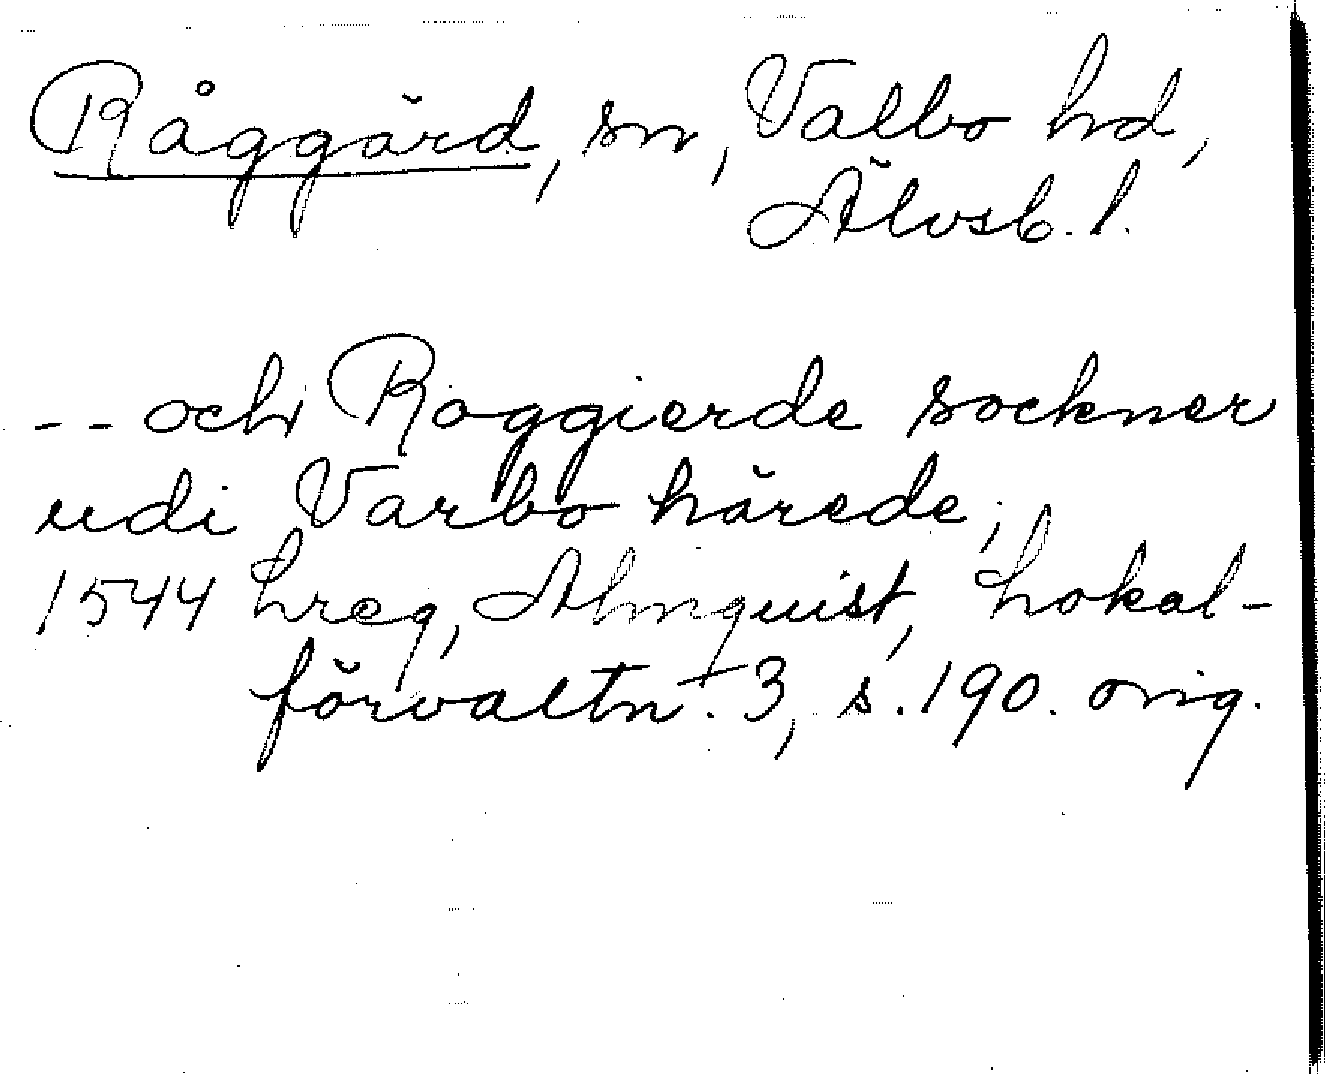 Råggärd, sn, Valbo hd,
Älvsb. l.
-- och Roggierde sockner
udi Varbo härede;
1544 hreg, Almquist, Lokal-
förvaltn. 3, s. 190. orig.